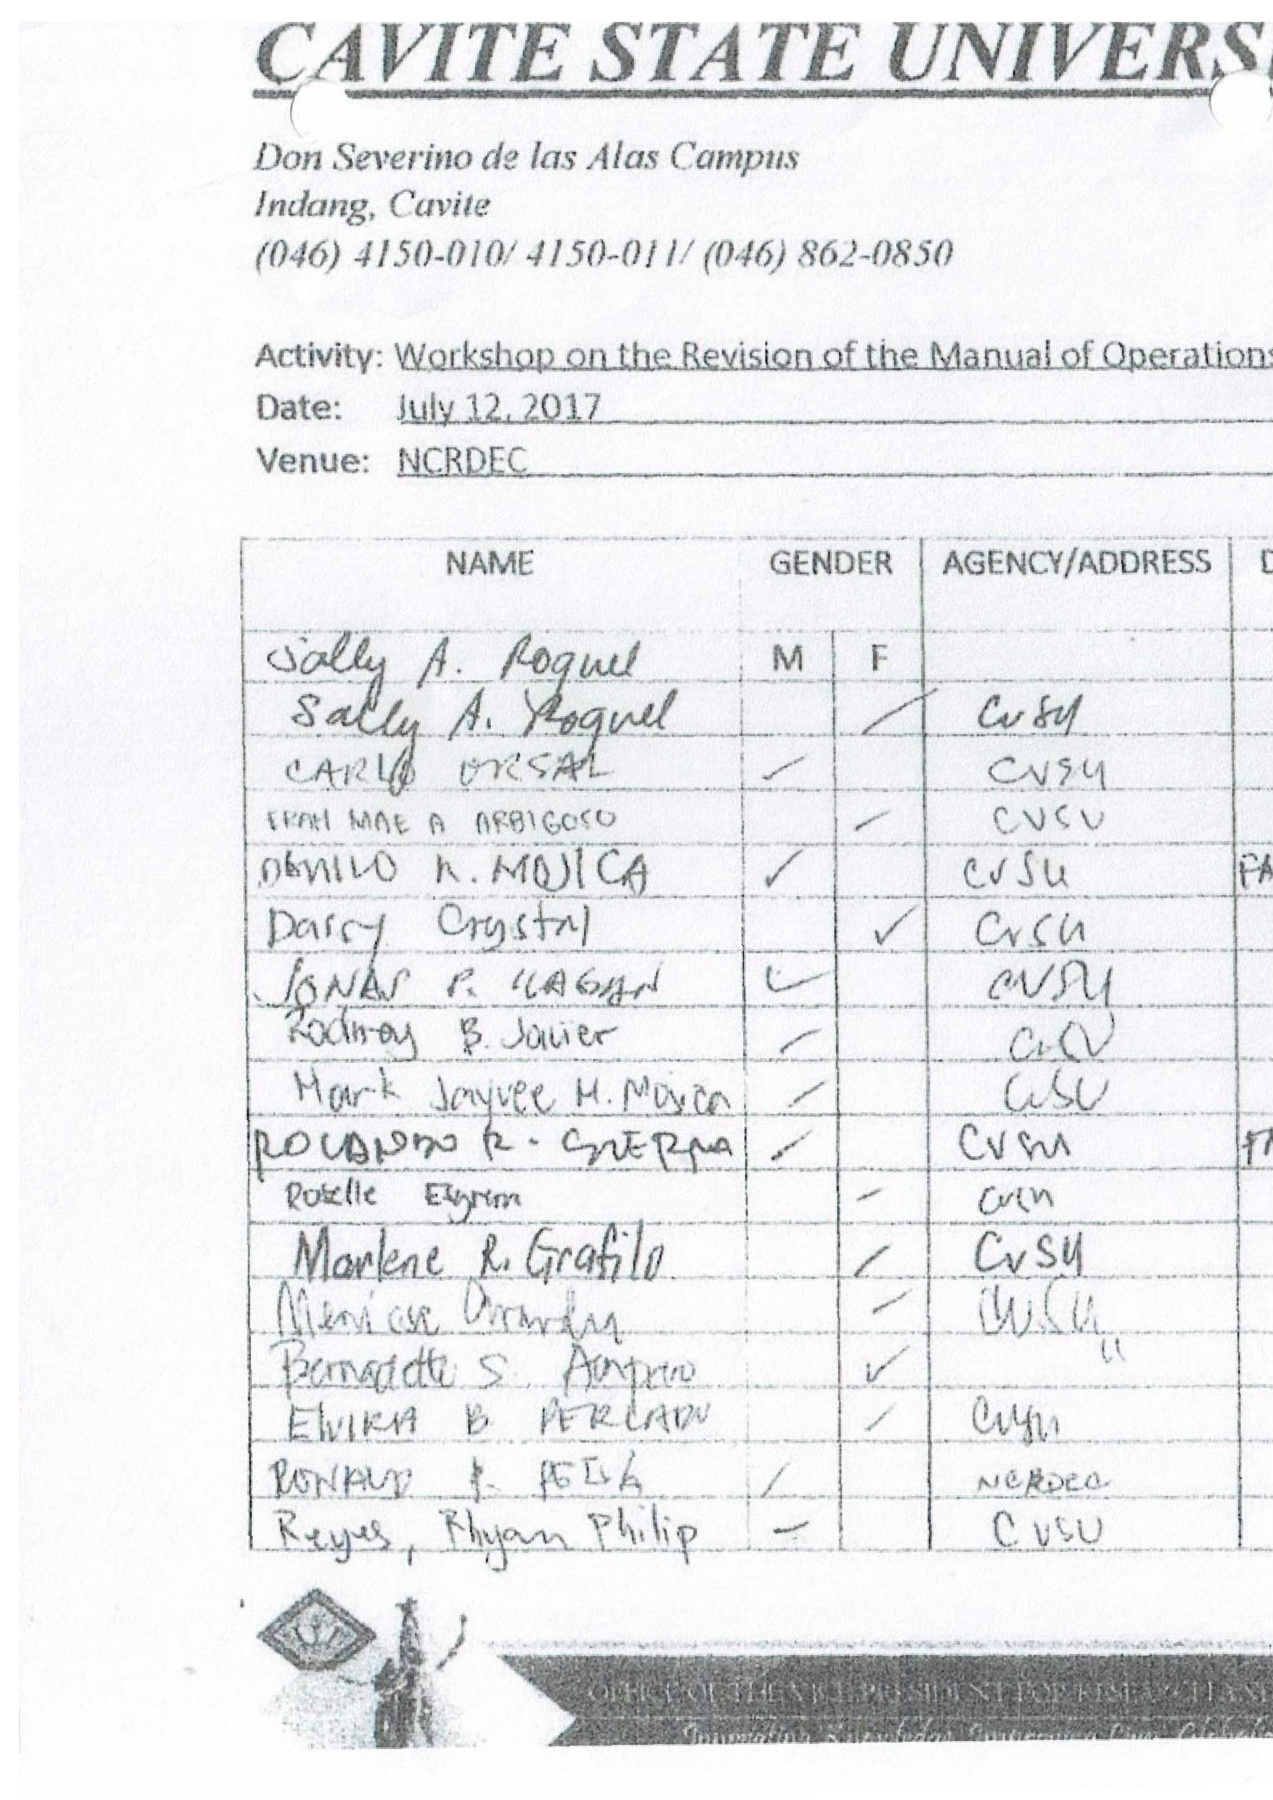 CAVITE STATE UNIVERSI
Don Severino de las Alas Campus
Indang, Cavite
(046) 4150-010/ 4150-011/ (046) 862-0850
Activity: Workshop on the Revision of the Manual of Operations
Date: July 12, 2017
Venue: NCRDEC
NAME GENDER AGENCY/ADDRESS D
Sally A. Roguel M F
Sally A. Roguel CvSU
CARLO ORSAL CVSU
MAE A ARBIGOSO CVSU
DANILO N. MOJICA CvSU FA
Daisy Crystal CvSU
JONAS P. CVSU
Rodney B. Javier CvSU
Mark Jayvee M. Mojica CvSU
ROLANDO R. GUERRA CVSU FA
Roselle CvSU
Marlene R. Grafilo CvSU
CvSU
Bernadette S. "
ELVIRA B. PERCADO CvSU
RONALD P. PEÑA NCRDEC
Reyes, Rhyan Philip CVSU
OFFICE OF THE VICE PRESIDENT FOR RESEARCH AN